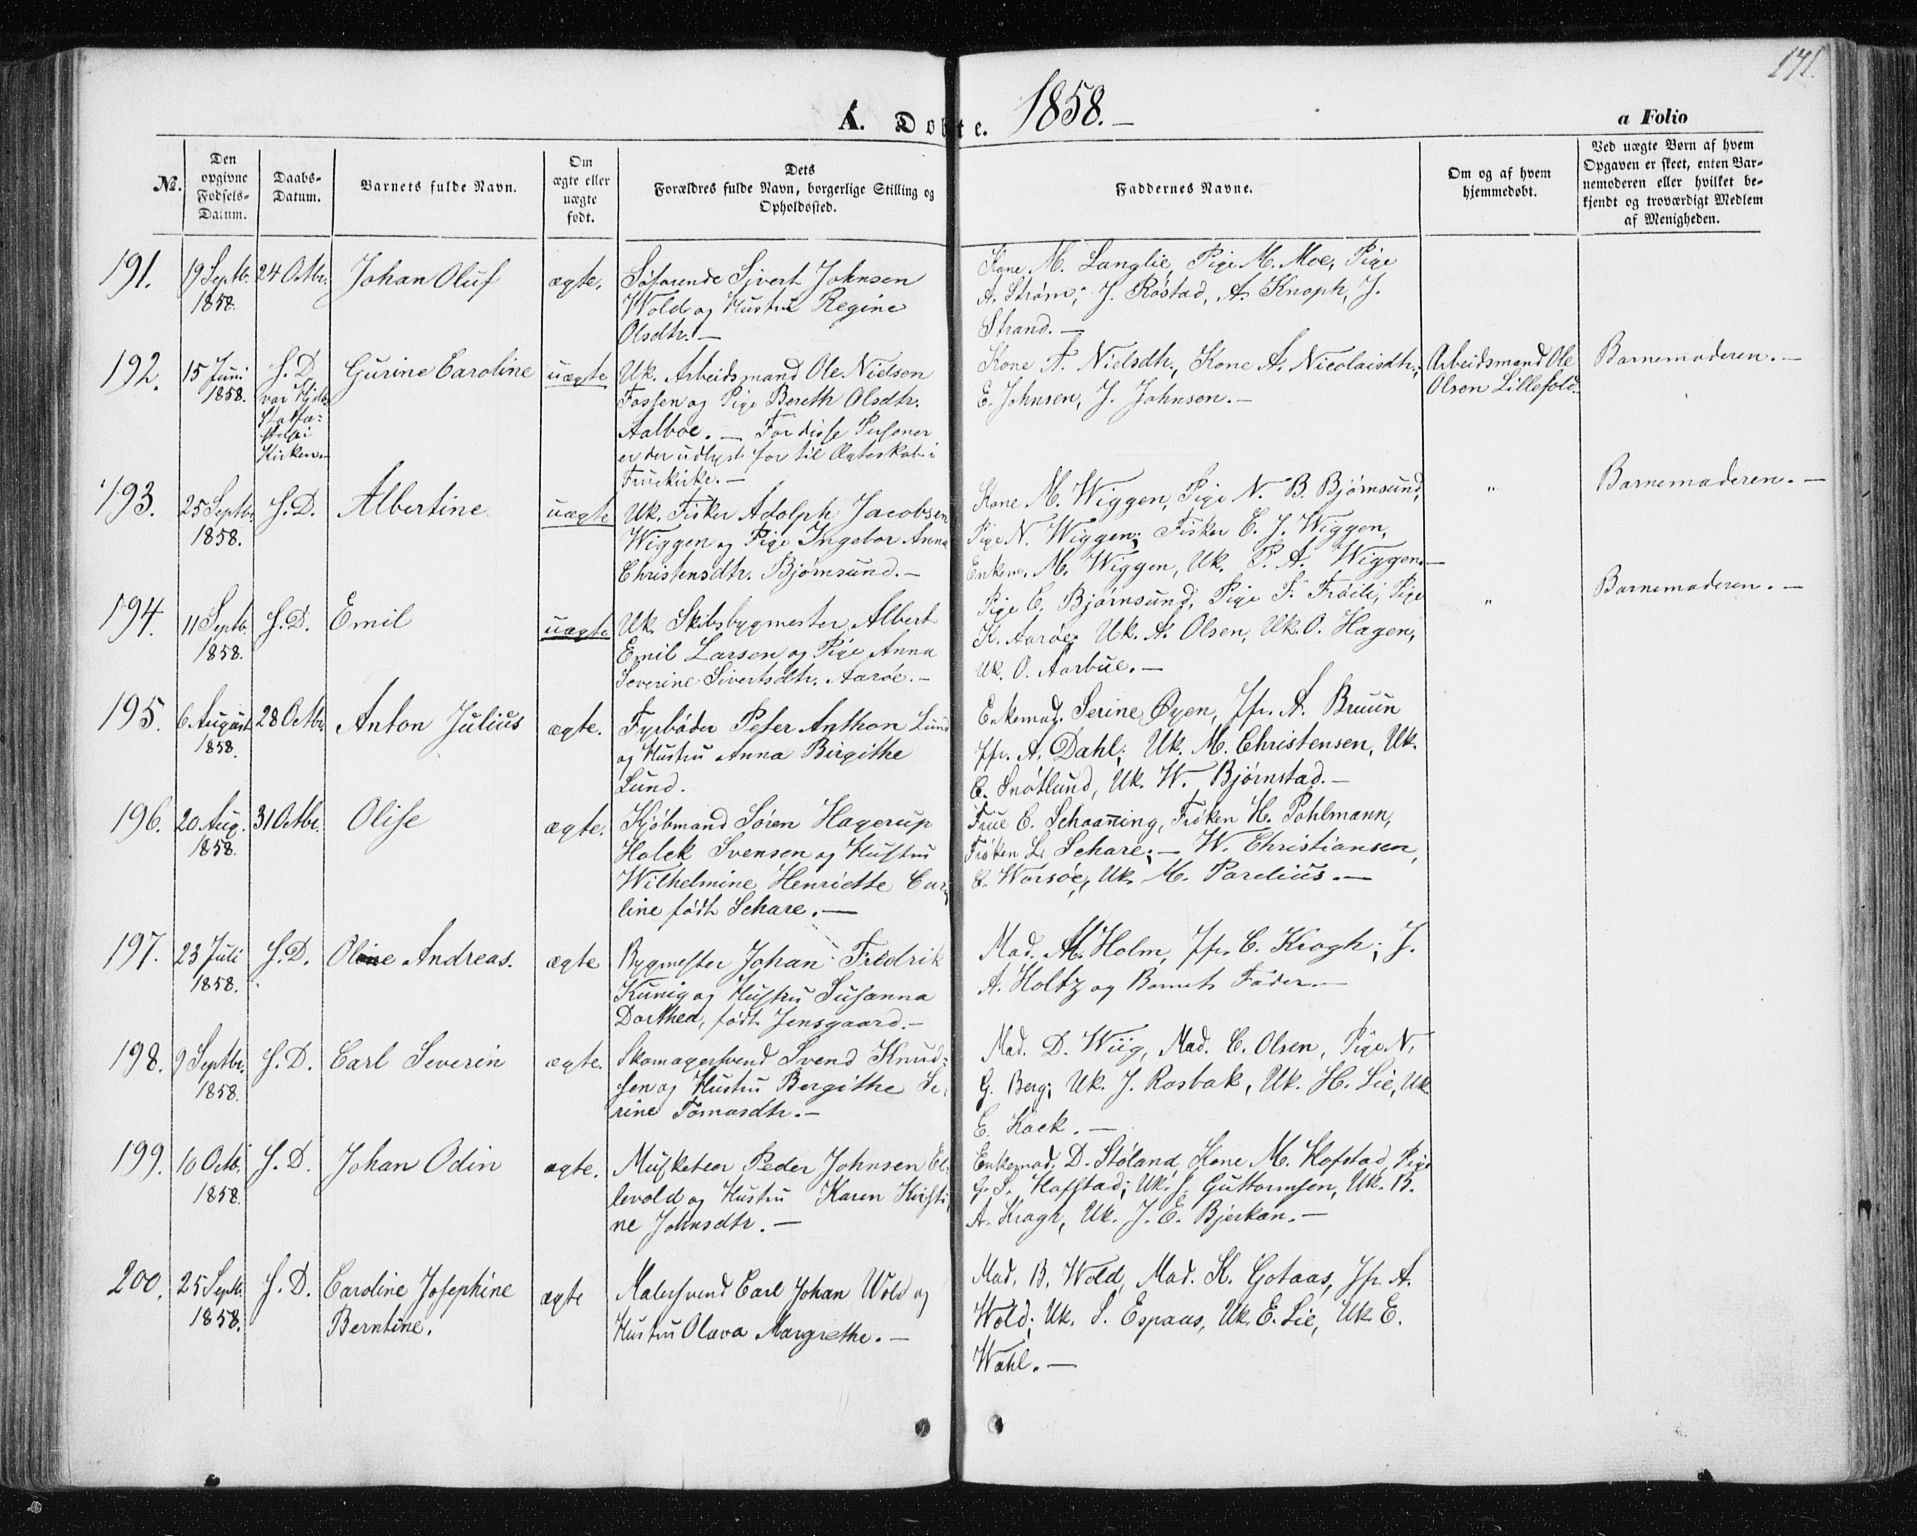 141.
A. Døbte. 1858.—
a Folio
No.
Den opgivne Fødsels-Datum.
Daabs-Datum.
Barnets fulde Navn.
Om ægte eller uægte født.
Dets Forældres fulde Navn, borgerlige Stilling og Opholdssted.
Faddernes Navne.
Om og af hvem hjemmedøbt.
Ved uægte Børn af hvem Opgaven er skeet, enten Barnemoderen eller hvilket bekjendt og troværdigt Medlem af Menigheden.
191. 19 Septb. 1858. 24 Octbr. Johan Oluf ægte.
Søfarende Sjvert Johnsen
Wold og Hustru Regine
Olsdtr.—
Kone M. Langlie, Pige M. Moe, Pige
A. Strøm; J. Røstad, A. Knoph, J.
Strand.—
192. 15 Juni 1858. S.D. Kirken.— Gurine Caroline uægte
Uk. Arbeidsmand Ole Nielsen
Fossen og Pige Bereth Olsdtr.
Aalboe.— For disse Personer
er der udlyst for til Ægteskab i
Fruekirke.—
Kone F. Nielsdtr., Kone A. Nicolaisdtr.;
E. Johnsen, J. Johnson.—
Arbeidsmand Ole
Olsen Lillefold.
Barnemoderen.—
193. 25 Septbr. 1858. S.D. Albertine uægte
Uk. Fisker Adolph Jacobsen
Wiggen og Pige Ingebor Anna
Christensdtr. Bjørnsund.—
Kone M. Wiggen, Pige N. B. Bjørnsund,
Pige N. Wiggen; Fisker C. J. Wiggen,
Enkem. M. Wiggen, Uk. P. A. Wiggen.—
"
Barnemoderen.—
194. 11 Septb. 1858. S.D. Emil uægte
Uk. Skibsbygmester Albert
Emil Larsen og Pige Anna
Severine Sivertsdtr. Aarøe.—
Pige C. Bjørnsund, Pige F. Frøili, Pige
K. Aarøe; Uk. A. Olsen, Uk. O. Hagen,
Uk. O. Aarbue.—
"
Barnemoderen.—
195. 6 August 1858. 28 Octbr. Anton Julius ægte.
Fyrbøder Peter Anthon Lund
og Hustru Anna Birgithe
Lund.
Enkemad. Serine Øyen, Jfr. A. Bruun
Jfr. A. Dahl; Uk. M. Christensen, Uk.
E. Snøtlund, Uk. W. Bjørnstad.—
196. 20 Aug. 1858. 31 Octbr. Olise ægte.
Kjøbmand Søren Hagerup
Holck Svensen og Hustru
Wilhelmine Henriette Caro-
line født Schare.—
Frue C. Schaaning, Frøken H. Pohlmann,
Frøken L. Schare;— W. Christiansen,
C. Worsøe, Uk. M. Parelius.—
197. 23 Juli 1858. S.D. Andreas. ægte
Bygmester Johan Fredrik
Kunig og Hustru Susanna
Dorthea, født Jensgaard.—
Mad. M. Holm, Jfr. C. Krogh; J.
A. Holtz og Barnets Fader.—
198. 9 Septbr. 1858. S.D. Carl Severin ægte.
Skomagersvend Svend Knud-
sen og Hustru Bergithe Se-
rine Tomasdtr.—
Mad. D. Wiig, Mad. C. Olsen, Pige N.
G. Berg; Uk. J. Rosbak, Uk. H. Lie, Uk
E. Hock.—
199. 10 Octb. 1858. S.D. Johan Odin ægte.
Musketeer Peder Johnsen El-
levold og Hustru Karen Kirsti-
ne Johnsdtr.—
Enkemad. D. Støland, Kone M. Hofstad, Pige
G. S. Hofstad; Uk. J. Guttormsen, Uk. B.
A. Krogh, Uk. J. E. Bjerkan.—
200. 25 Septb. 1858. S.D. Caroline Josephine
Berntine. ægte
Malersvend Carl Johan Wold og
Hustru Olava Margrethe.—
Mad. B. Wold, Mad. K. Gotaas, Jfr. A.
Wold; Uk. S. Espaas, Uk. E. Lie, Uk E.
Wahl.—